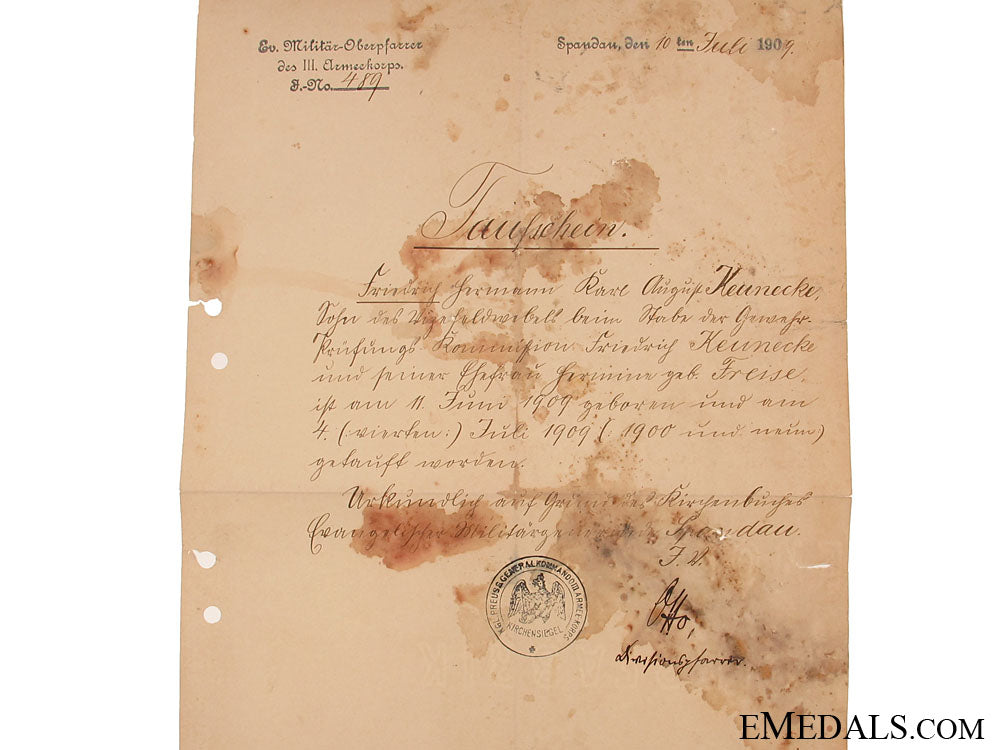 Ev. Militär-Oberpfarrer
des III. Armeekorps.
J.-No. 489
Spandau, den 10 ten Juli 1909.
Taufschein.
Friedrich Hermann Karl August Keunecke,
Sohn des Vizefeldwebels beim Stabe der Gewehr-
Prüfungs-Kommission Friedrich Keunecke
und seiner Ehefrau Hermine geb. Freise,
ist am 11. Juni 1909 geboren und am
4. (: vierten :) Juli 1909 (: 1900 und neun)
getauft worden.
Urkundlich auf Grund des Kirchenbuches
Evangelischer Militärgemeinde Spandau.
J. V.
Otto,
Divisionspfarrer.
KGL. PREUSS. GENERALKOMMANDO III ARMEEKORPS
KIRCHENSIEGEL
EMEDALS.COM